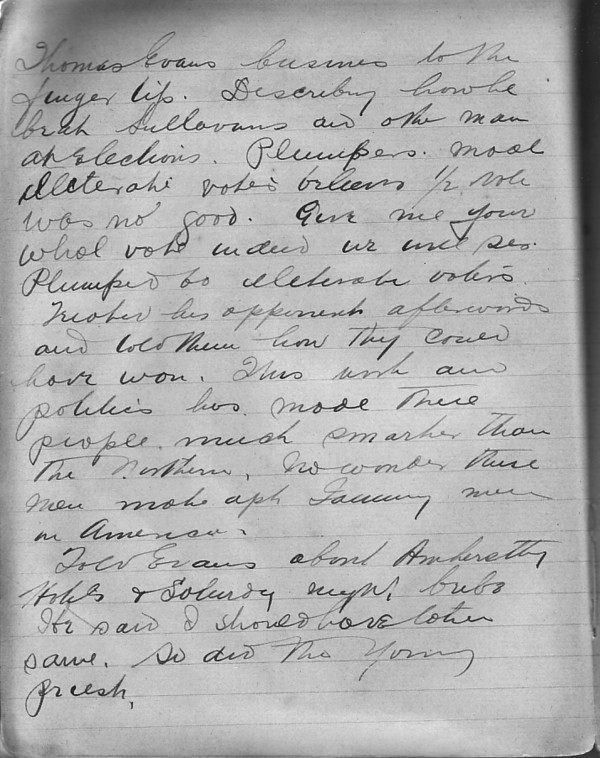 Thomas Evans business to the
finger tips. Describing how he
beat Sullavans and othe man
at Elections. Plumpers. made
illiterate voters believe 1/2 vote
was no good. Give me your
whol vote indeed we will ses.
Plumped to illiterate voters.
his opponents afterwords
and told them how they could
have won. This work and
politics has made these
people much smarter than
the Northern. No wonder these
men make apt Tammny men
in America.
Told Evans about
Hotels & Saturdy night
He said I should have taken
same. So did the Young
preest.